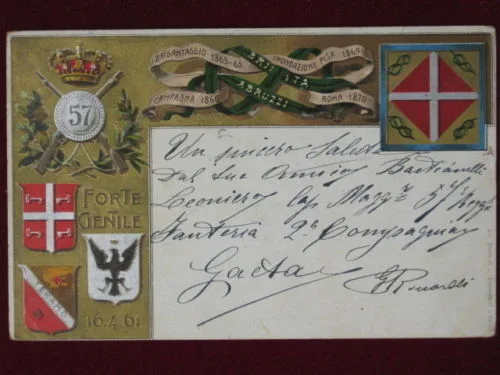 BRIGANTAGGIO 1863-65
INONDAZIONE PISA 1869
BRIGATA
ABRUZZI
CAMPAGNA 1866
ROMA 1870
57
FORTE
GENTILE
TERAMO
16.4.61
Un sincero Salut
Dal tuo Amico Bastianelli
Leoniero Cap. Magg.re 57º Regg
Fanteria 2ª Compagnia
Gaeta